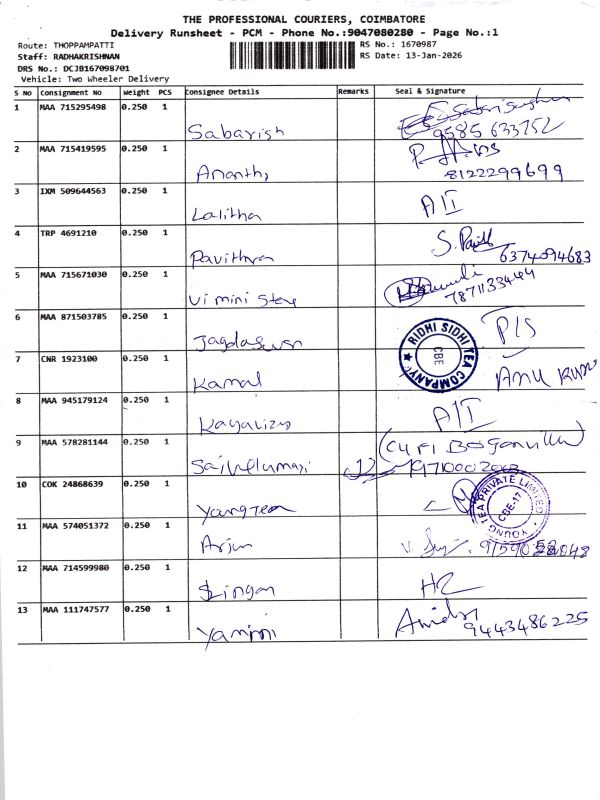 THE PROFESSIONAL COURIERS, COIMBATORE
Delivery Runsheet - PCM - Phone No.:9047080280 - Page No.:1
Route: THOPPAMPATTI
RS No.: 1670987
Staff: RADHAKRISHNAN
RS Date: 13-Jan-2026
DRS No.: DCJB167098701
Vehicle: Two Wheeler Delivery
S No Consignment No Weight PCS Consignee Details Remarks Seal & Signature
1 MAA 715295498 0.250 1
Sabarish 9585 633752
2 MAA 715419595 0.250 1
Ananth, 8122299699
3 IXM 509644563 0.250 1
Lalitha A/I
4 TRP 4691210 0.250 1
Pavithra S. 6374094683
5 MAA 715671030 0.250 1
7871133444
6 MAA 871503785 0.250 1
P/S
RIDHI SIDHI TEA COMPANY
CBE
7 CNR 1923100 0.250 1
Kamal
8 MAA 945179124 0.250 1
A/I
9 MAA 578281144 0.250 1
10 COK 24868639 0.250 1
Youngtea
YOUNG TEA PRIVATE LIMITED
CBE-17
11 MAA 574051372 0.250 1
Arjun
12 MAA 714599980 0.250 1
13 MAA 111747577 0.250 1
9443486225